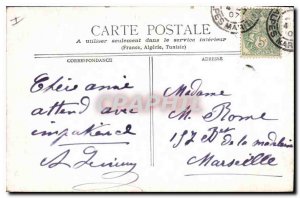 CARTE POSTALE
A utiliser seulement dans le service intérieur
(France, Algérie, Tunisie)
CORRESPONDANCE
ADRESSE
Chère amie
attend avec
impatience
Madame
M. Rome
137 Bd de la madeleine
Marseille
07
5